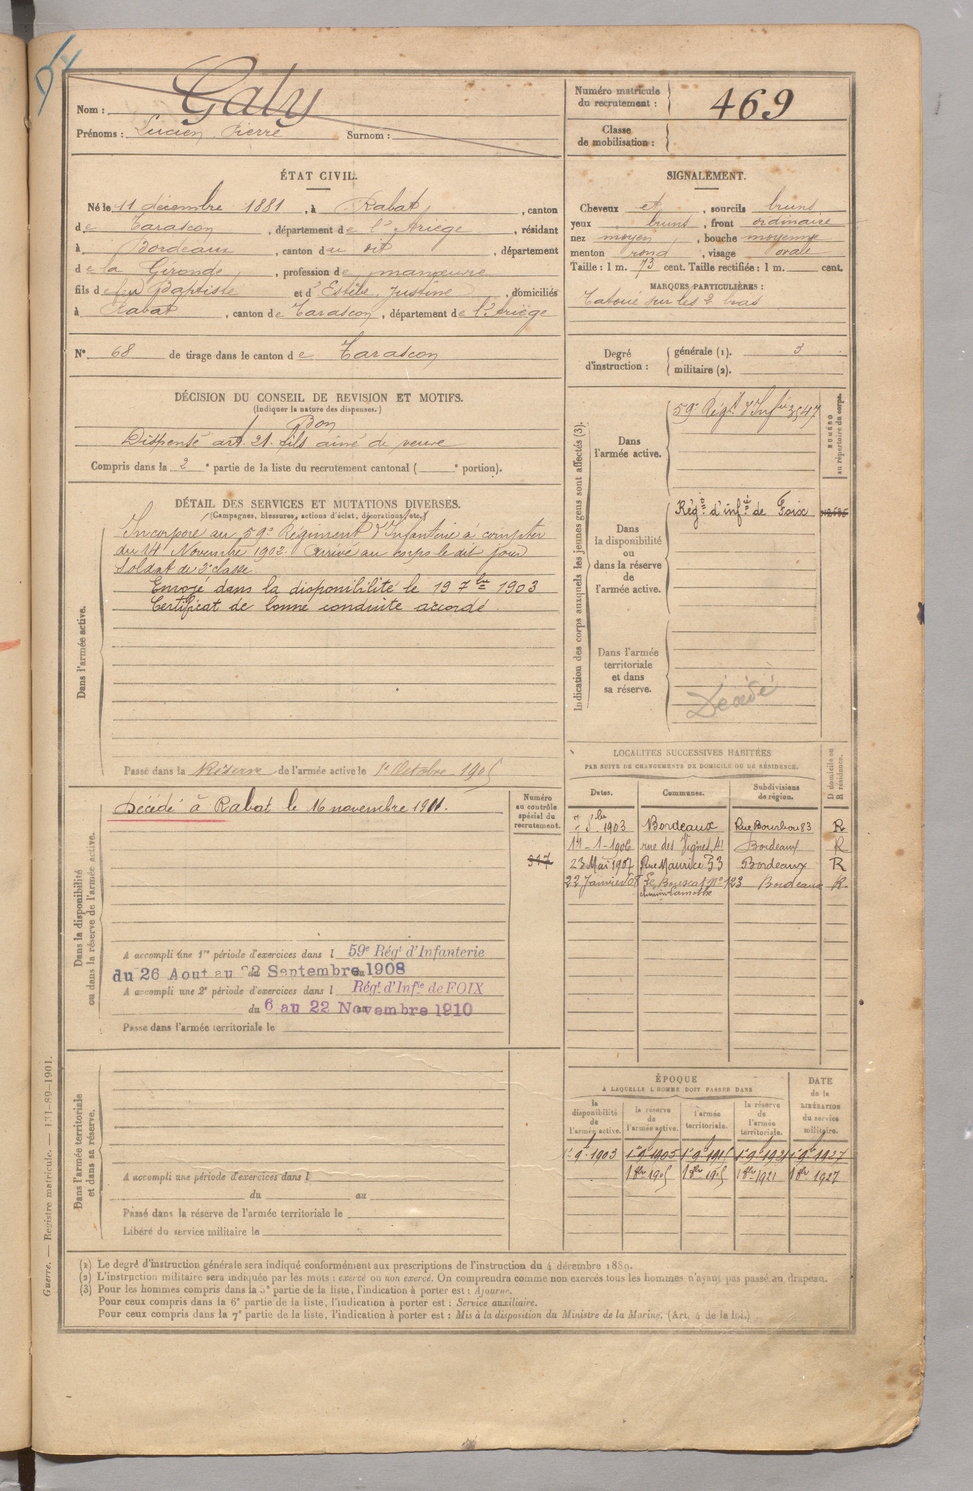 Nom : Galy
Prénoms : Lucien Pierre Surnom :
Numéro matricule du recrutement : 469
Classe de mobilisation :
ÉTAT CIVIL.
Né le 11 décembre 1881, à Rabat, canton
de Tarascon, département de l'Ariège, résidant
à Bordeaux, canton du dit, département
de la Gironde, profession de manœuvre
fils de feu Baptiste et d'Estèbe, Justine, domiciliés
à Rabat, canton de Tarascon, département de l'Ariège
N° 68 de tirage dans le canton de Tarascon
SIGNALEMENT.
Cheveux et, sourcils bruns
yeux bruns, front ordinaire
nez moyen, bouche moyenne
menton rond, visage ovale
Taille : 1 m. 73 cent. Taille rectifiée : 1 m. cent.
MARQUES PARTICULIÈRES :
Tatoué sur les 2 bras
Degré d'instruction :
générale (1). 3
militaire (2).
DÉCISION DU CONSEIL DE REVISION ET MOTIFS.
(Indiquer la nature des dispenses.)
Bon
Dispensé art. 21. fils aîné de veuve
Compris dans la 2e partie de la liste du recrutement cantonal ( e portion).
DÉTAIL DES SERVICES ET MUTATIONS DIVERSES.
(Campagnes, blessures, actions d'éclat, décorations, etc.)
Dans l'armée active.
Incorporé au 59e Régiment d'Infanterie à compter
du 14 Novembre 1902. Arrivé au corps le dit jour
Soldat de 2e classe
Envoyé dans la disponibilité le 19 7bre 1903
Certificat de bonne conduite accordé.
Passé dans la Réserve de l'armée active le 1er Octobre 1905
Indication des corps auxquels les jeunes gens sont affectés (3).
NUMÉRO au répertoire du corps.
Dans l'armée active.
59e Régt d'Infie 3547
Dans la disponibilité ou dans la réserve de l'armée active.
Régt d'infie de Foix
Dans l'armée territoriale et dans sa réserve.
Décédé
Dans la disponibilité ou dans la réserve de l'armée active.
Décédé à Rabat le 16 novembre 1911.
Numéro au contrôle spécial du recrutement.
317
A accompli une 1re période d'exercices dans l 59e Régt d'Infanterie
du 26 Aout au 22 Septembre 1908
A accompli une 2e période d'exercices dans l Régt d'Infie de FOIX
du 6 au 22 Novembre 1910
Passé dans l'armée territoriale le
LOCALITÉS SUCCESSIVES HABITÉES
PAR SUITE DE CHANGEMENTS DE DOMICILE OU DE RÉSIDENCE.
D domicile ou R résidence.
Dates. Communes. Subdivisions de région.
8bre 1903 Bordeaux Rue Bouchon 83 R
14-1-1906 rue des Vignes, Bordeaux R
23 Mai 1907 Rue Maurice 53 Bordeaux R
22 Janvier 08 Le Bouscat N° 123 Bordeaux R.
Dans l'armée territoriale et dans sa réserve.
A accompli une période d'exercices dans l
du au
Passé dans la réserve de l'armée territoriale le
Libéré du service militaire le
ÉPOQUE
A LAQUELLE L'HOMME DOIT PASSER DANS
DATE de la LIBÉRATION du service militaire.
la disponibilité de l'armée active. la réserve de l'armée active. l'armée territoriale. la réserve de l'armée territoriale.
1.9.1903 1.9.1905 1.9.1915 1.9.1921 1.9.1927
1 8bre 1905 1 8bre 1915 1 8bre 1921 1 8bre 1927
(1) Le degré d'instruction générale sera indiqué conformément aux prescriptions de l'instruction du 4 décembre 1889.
(2) L'instruction militaire sera indiquée par les mots : exercé ou non exercé. On comprendra comme non exercés tous les hommes n'ayant pas passé au drapeau.
(3) Pour les hommes compris dans la 5e partie de la liste, l'indication à porter est : Ajourné.
Pour ceux compris dans la 6e partie de la liste, l'indication à porter est : Service auxiliaire.
Pour ceux compris dans la 7e partie de la liste, l'indication à porter est : Mis à la disposition du Ministre de la Marine. (Art. 4 de la loi.)
Guerre. — Registre matricule. — 131-89-1901.